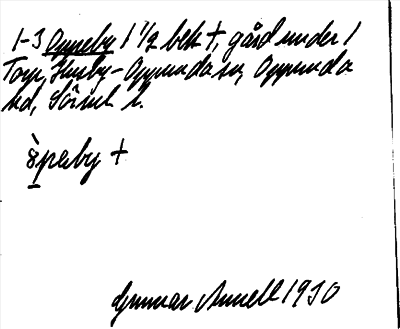 1-3 Oppeby 1 1/2 bck †, gård under 1
Torp, Husby-Oppunda sn, Oppunda
hd, Söml l.
öpeby †
Gunnar Annell 1930